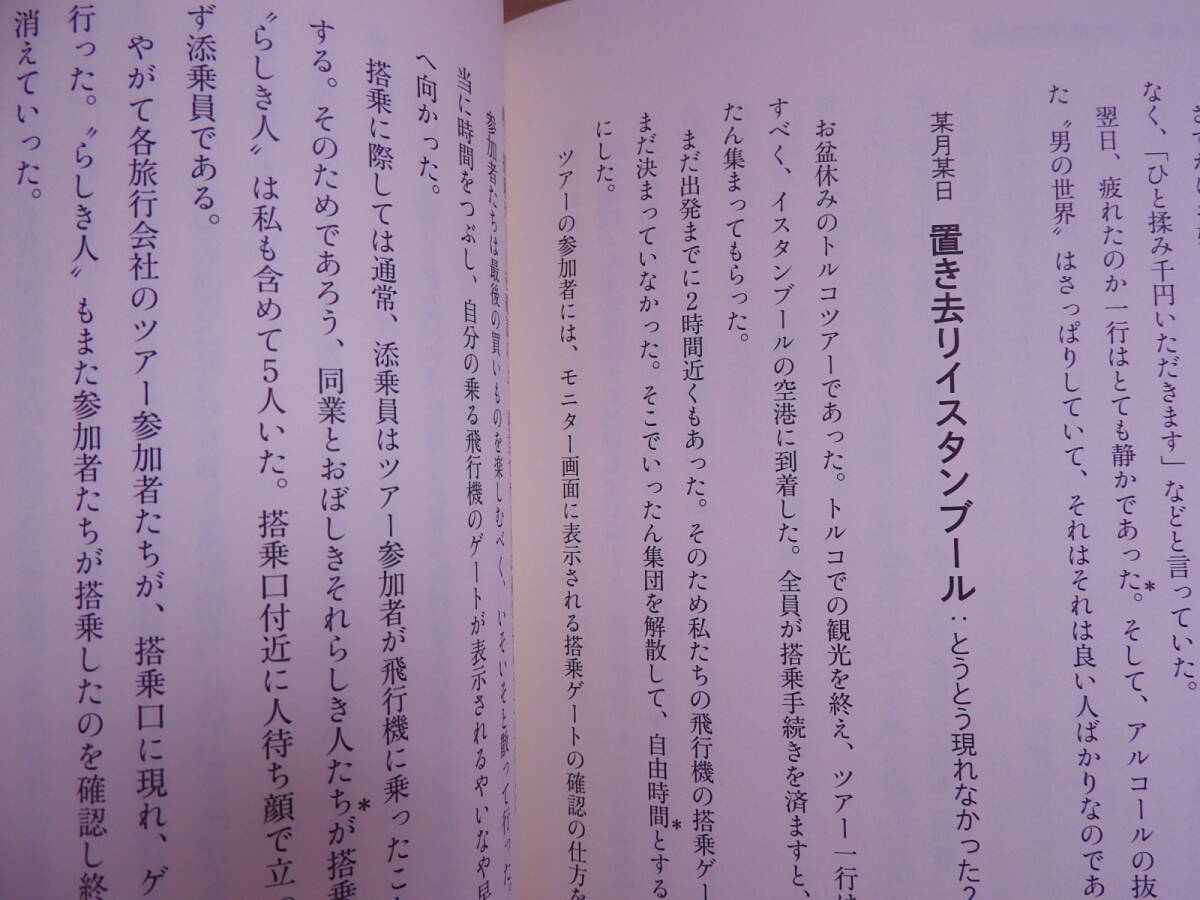 なく、「ひと揉み千円いただきます」などと言っていた。
翌日、疲れたのか一行はとても静かであった。*そして、アルコールの抜
た〝男の世界〟はさっぱりしていて、それはそれは良い人ばかりなのであ
某月某日 置き去りイスタンブール:とうとう現れなかった2
お盆休みのトルコツアーであった。トルコでの観光を終え、ツアー一行は
すべく、イスタンブールの空港に到着した。全員が搭乗手続きを済ますと、
たん集まってもらった。
まだ出発までに2時間近くもあった。そのため私たちの飛行機の搭乗ゲー
まだ決まっていなかった。そこでいったん集団を解散して、自由時間*とする
にした。
ツアーの参加者には、モニター画面に表示される搭乗ゲートの確認の仕方を
参加者たちは最後の買いものを楽しむべく、いそいそと散って行った。
当に時間をつぶし、自分の乗る飛行機のゲートが表示されるやいなや早
へ向かった。
搭乗に際しては通常、添乗員はツアー参加者が飛行機に乗ったこ
する。そのためであろう、同業とおぼしきそれらしき人たち*が搭乗
〝らしき人〟は私も含めて5人いた。搭乗口付近に人待ち顔で立
ず添乗員である。
やがて各旅行会社のツアー参加者たちが、搭乗口に現れ、ゲ
行った。〝らしき人〟もまた参加者たちが搭乗したのを確認し終
消えていった。